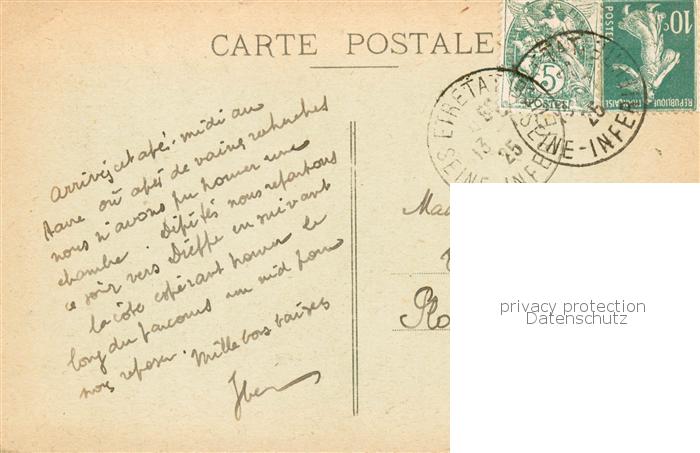 CARTE POSTALE
5c
POSTES
10c
POSTES
RÉPUBLIQUE FRANÇAISE
ETRETAT
13
25
SEINE-INFE
25
SEINE-INFERE
Arrivés cet apé-midi au
Havre où après de vaines recherches
nous n'avons pu trouver une
chambre. Dépités nous repartons
ce soir vers Dieppe en suivant
la côte espérant trouver le
long du parcours un nid pour
nous reposer. Mille bons baisers
Ma
privacy protection
Datenschutz